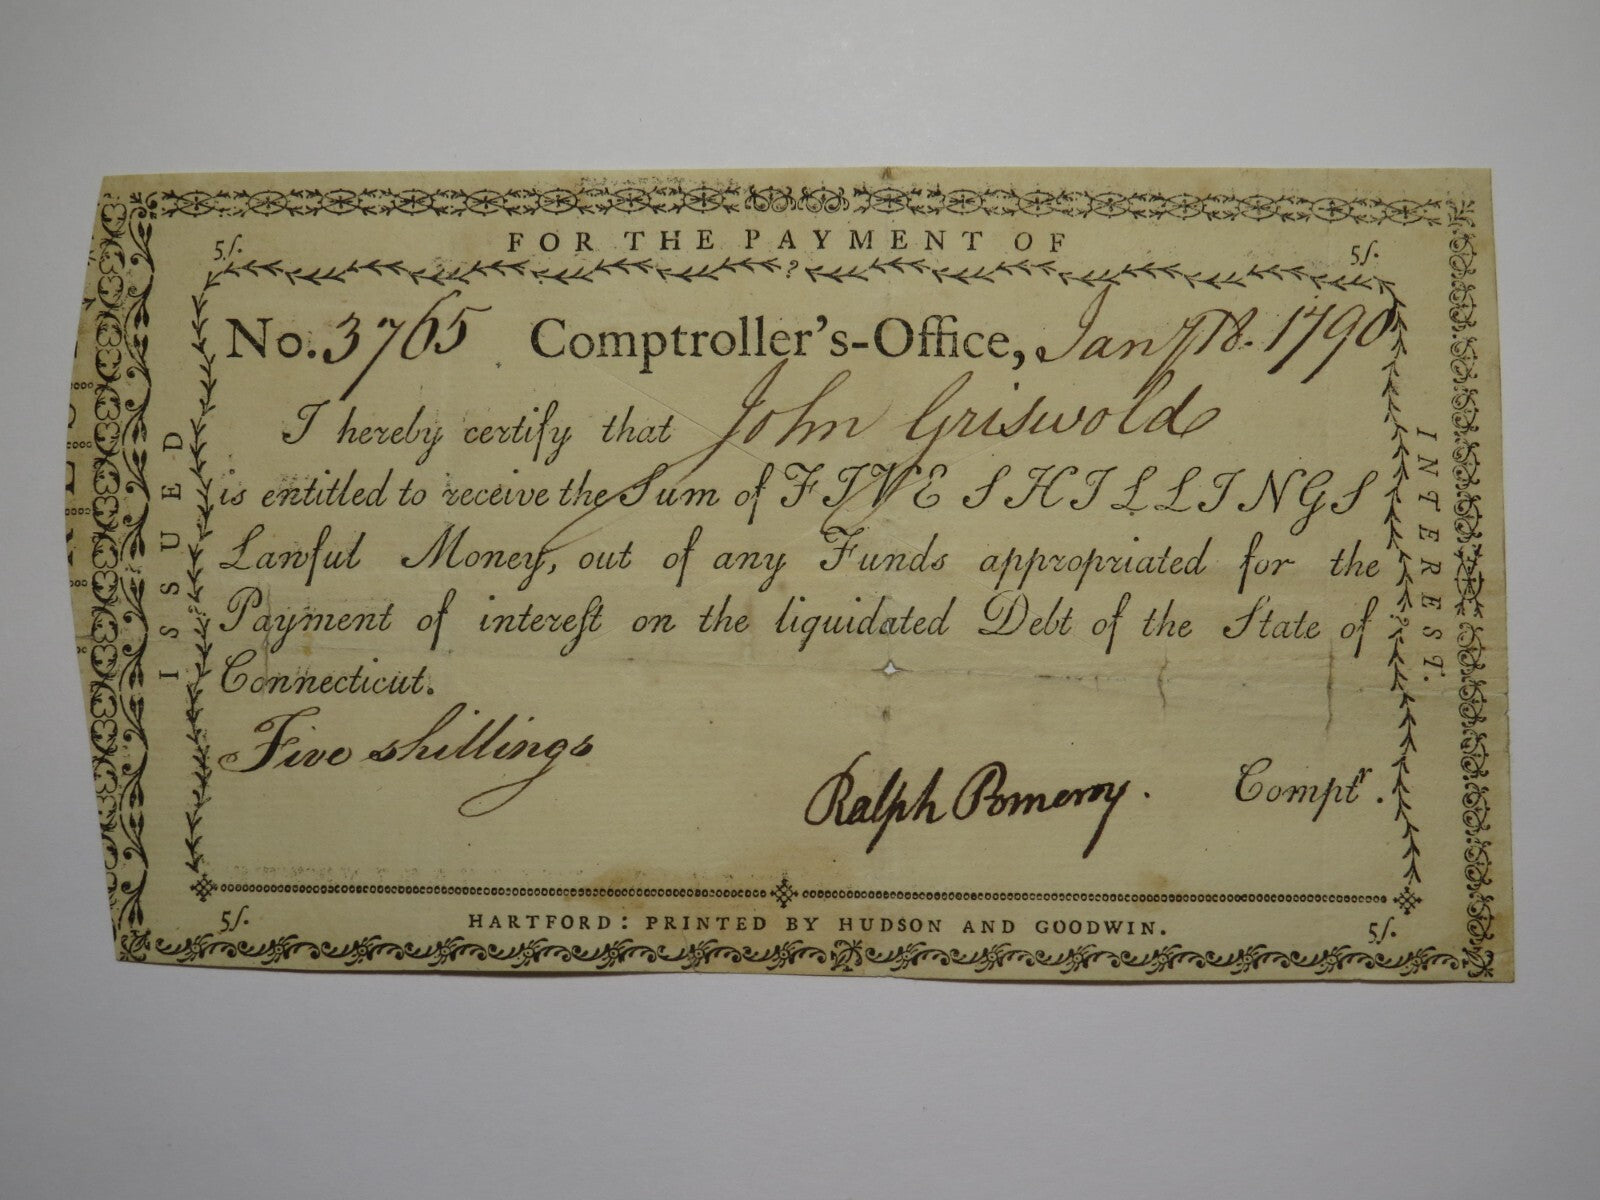 FOR THE PAYMENT OF
5/. 5/.
No. 3765 Comptroller's-Office, Jany 18. 1790
I hereby certify that John Griswold
is entitled to receive the Sum of FIVE SHILLINGS
Lawful Money, out of any Funds appropriated for the
Payment of intereſt on the liquidated Debt of the State of
Connecticut.
Five shillings
Ralph Pomeroy. Comptr.
5/. 5/.
HARTFORD: PRINTED BY HUDSON AND GOODWIN.
ISSUED
INTEREST.